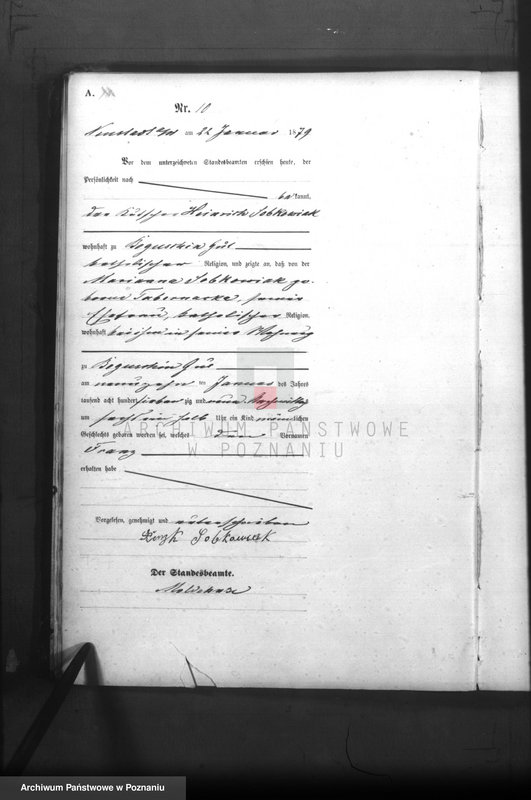 A.
Nr. 10
Neustadt a/W am 22 Januar 1879
Vor dem unterzeichneten Standesbeamten erschien heute, der
Persönlichkeit nach
bekannt,
der Kutscher Heinrich Sobkowiak
wohnhaft zu Boguschin Gut
katholischer Religion, und zeigte an, daß von der
Marianna Sobkowiak ge-
borene Tabernacka, seiner
Ehefrau, katholischer Religion,
wohnhaft bei ihm in seiner Wohnung
zu Boguschin Gut
am neunzehn ten Januar des Jahres
tausend acht hundert sieben zig und neun Nachmittags
um halb Uhr ein Kind männlichen
Geschlechts geboren worden sei, welches den Vornamen
Franz
erhalten habe
Vorgelesen, genehmigt und unterschrieben
Sobkowiak
Der Standesbeamte.
ARCHIWUM PAŃSTWOWE
W POZNANIU
Archiwum Państwowe w Poznaniu